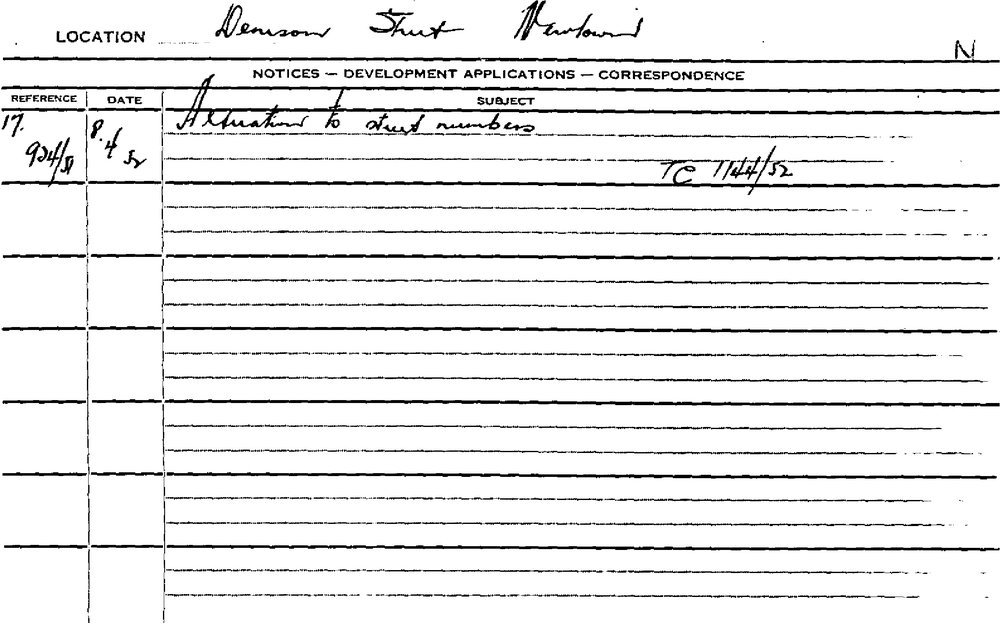 LOCATION Denison Street Newtown
N
NOTICES — DEVELOPMENT APPLICATIONS — CORRESPONDENCE
REFERENCE DATE SUBJECT
17. 8. Alteration to street numbers
4 52
TC 1144/52